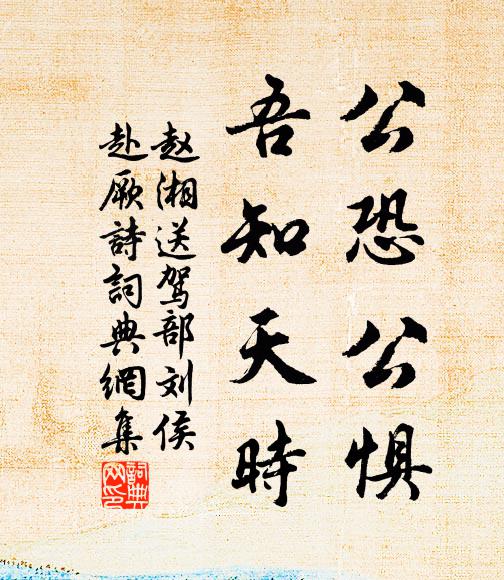 公恐公惧
吾知天時
赵湘送驾部刘侯
赴厥詩詞典網集
詞典网印